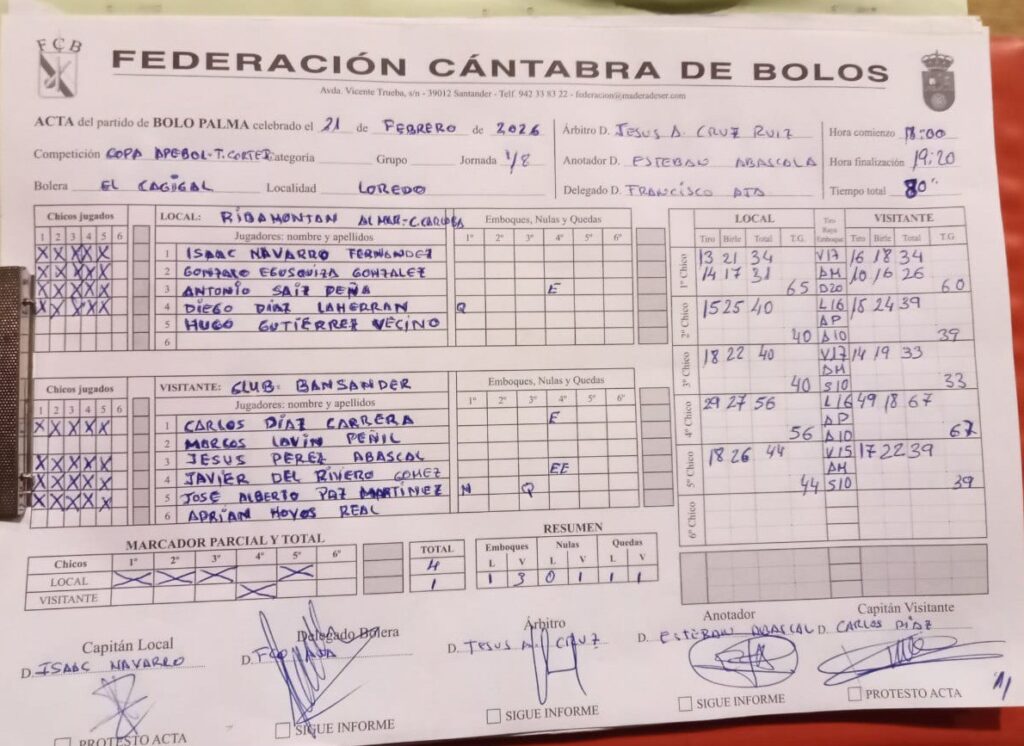 FCB
FEDERACIÓN CÁNTABRA DE BOLOS
Avda. Vicente Trueba, s/n - 39012 Santander - Telf. 942 33 83 22 - federacion@maderadeser.com
ACTA del partido de BOLO PALMA celebrado el 21 de FEBRERO de 2026
Competición COPA APEBOL-T.CORTES Categoría Grupo Jornada 1/8
Bolera EL CAGIGAL Localidad LOREDO
Árbitro D. JESUS A. CRUZ RUIZ
Anotador D. ESTEBAN ABASCAL
Delegado D. FRANCISCO
Hora comienzo 18:00
Hora finalización 19:20
Tiempo total 80"
Chicos jugados
1 2 3 4 5 6
LOCAL: RIBAMONTAN AL MAR-C.
Jugadores: nombre y apellidos
Emboques, Nulas y Quedas
1º 2º 3º 4º 5º 6º
X X X X X 1 ISAAC NAVARRO FERNANDEZ
X X X X X 2 GONZALO EGUSQUIZA GONZALEZ
X X X X X 3 ANTONIO SAIZ PEÑA E
X X X X X 4 DIEGO DIAZ LAHERRAN Q
5 HUGO GUTIÉRREZ VECINO
6
Chicos jugados
1 2 3 4 5 6
VISITANTE: CLUB BANSANDER
Jugadores: nombre y apellidos
Emboques, Nulas y Quedas
1º 2º 3º 4º 5º 6º
X X X X X 1 CARLOS DÍAZ CARRERA E
2 MARCOS LAVIN PEÑIL
X X X X X 3 JESUS PEREZ ABASCAL
X X X X X 4 JAVIER DEL RIVERO GOMEZ EE
X X X X X 5 JOSE ALBERTO PAZ MARTINEZ N Q
6 ADRIAN HOYOS REAL
LOCAL VISITANTE
Tiro Birle Total T.G. Tiro Raya Emboque Tiro Birle Total T.G.
1º Chico 13 21 34 V17 16 18 34
14 17 31 AM 10 16 26
65 D20 60
2º Chico 15 25 40 L16 15 24 39
AP
40 A10 39
3º Chico 18 22 40 V17 14 19 33
DM
40 S10 33
4º Chico 29 27 56 L16 49 18 67
AP
56 A10 67
5º Chico 18 26 44 V15 17 22 39
AM
44 S10 39
6º Chico
MARCADOR PARCIAL Y TOTAL
Chicos 1º 2º 3º 4º 5º 6º TOTAL
LOCAL X X X X 4
VISITANTE X 1
RESUMEN
Emboques Nulas Quedas
L V L V L V
1 3 0 1 1 1
Capitán Local
D. ISAAC NAVARRO
PROTESTO ACTA
Delegado Bolera
D.
SIGUE INFORME
Árbitro
D. JESUS A. CRUZ
SIGUE INFORME
Anotador
D. ESTEBAN ABASCAL
SIGUE INFORME
Capitán Visitante
D. CARLOS DÍAZ
PROTESTO ACTA